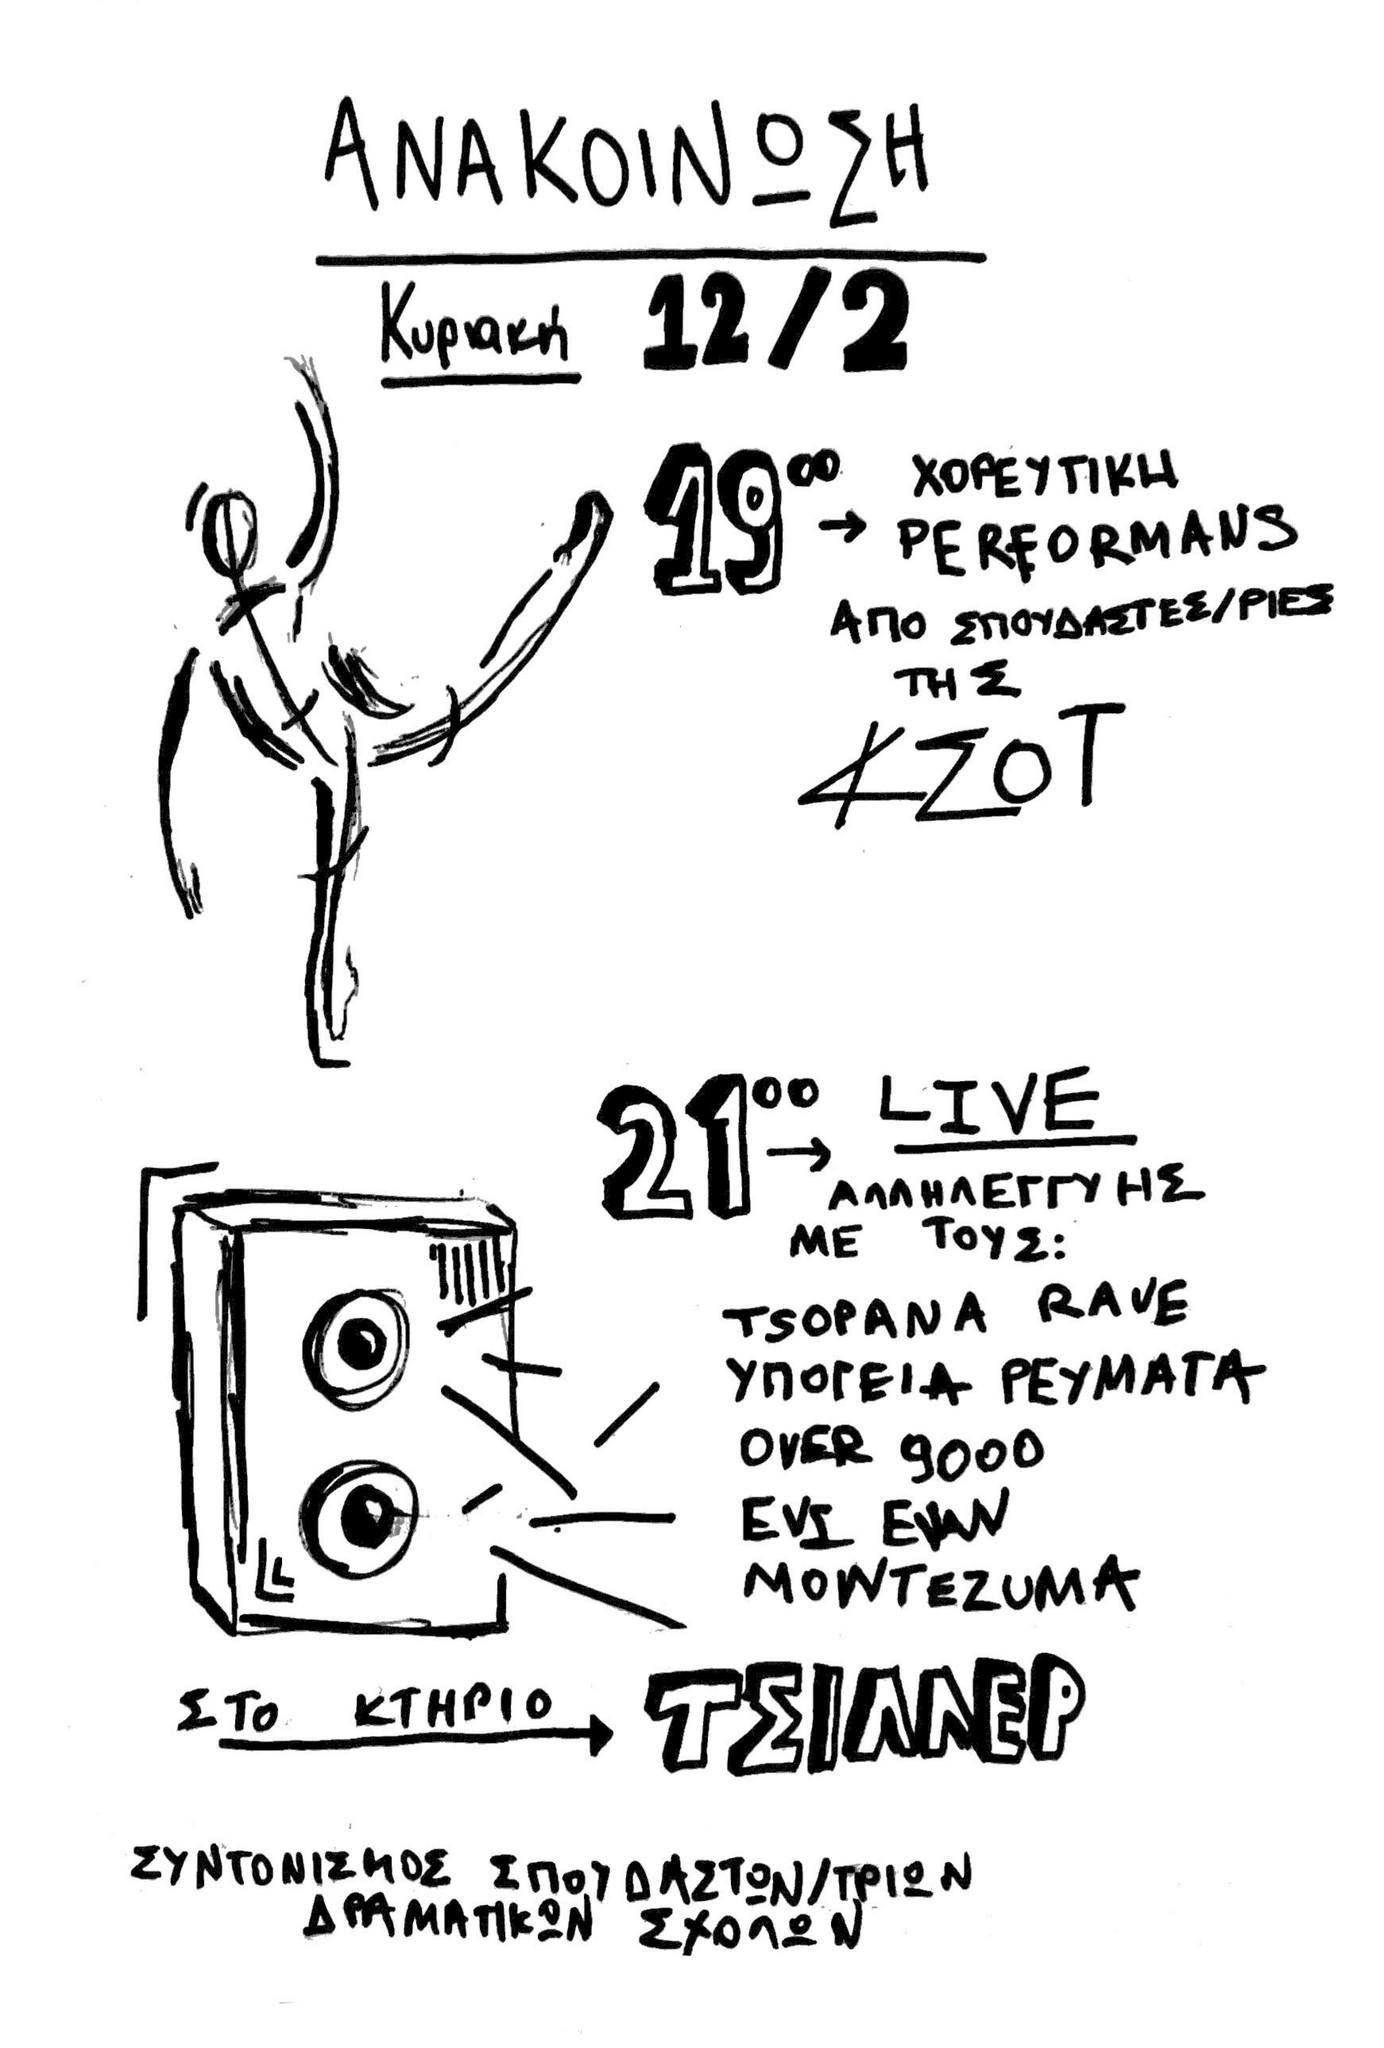 ΑΝΑΚΟΙΝΩΣΗ
Κυριακή 12/2
19⁰⁰ → ΧΟΡΕΥΤΙΚΗ
PERFORMANS
ΑΠΟ ΣΠΟΥΔΑΣΤΕΣ/ΡΙΕΣ
ΤΗΣ
ΚΣΟΤ
21⁰⁰ → LIVE
ΑΛΛΗΛΕΓΓΥΗΣ
ΜΕ ΤΟΥΣ:
TSOPANA RAVE
ΥΠΟΓΕΙΑ ΡΕΥΜΑΤΑ
OVER 9000
EVI EVAN
MONTEZUMA
ΣΤΟ ΚΤΗΡΙΟ → ΤΣΙΛΛΕΡ
ΣΥΝΤΟΝΙΣΜΟΣ ΣΠΟΥΔΑΣΤΩΝ/ΤΡΙΩΝ
ΔΡΑΜΑΤΙΚΩΝ ΣΧΟΛΩΝ